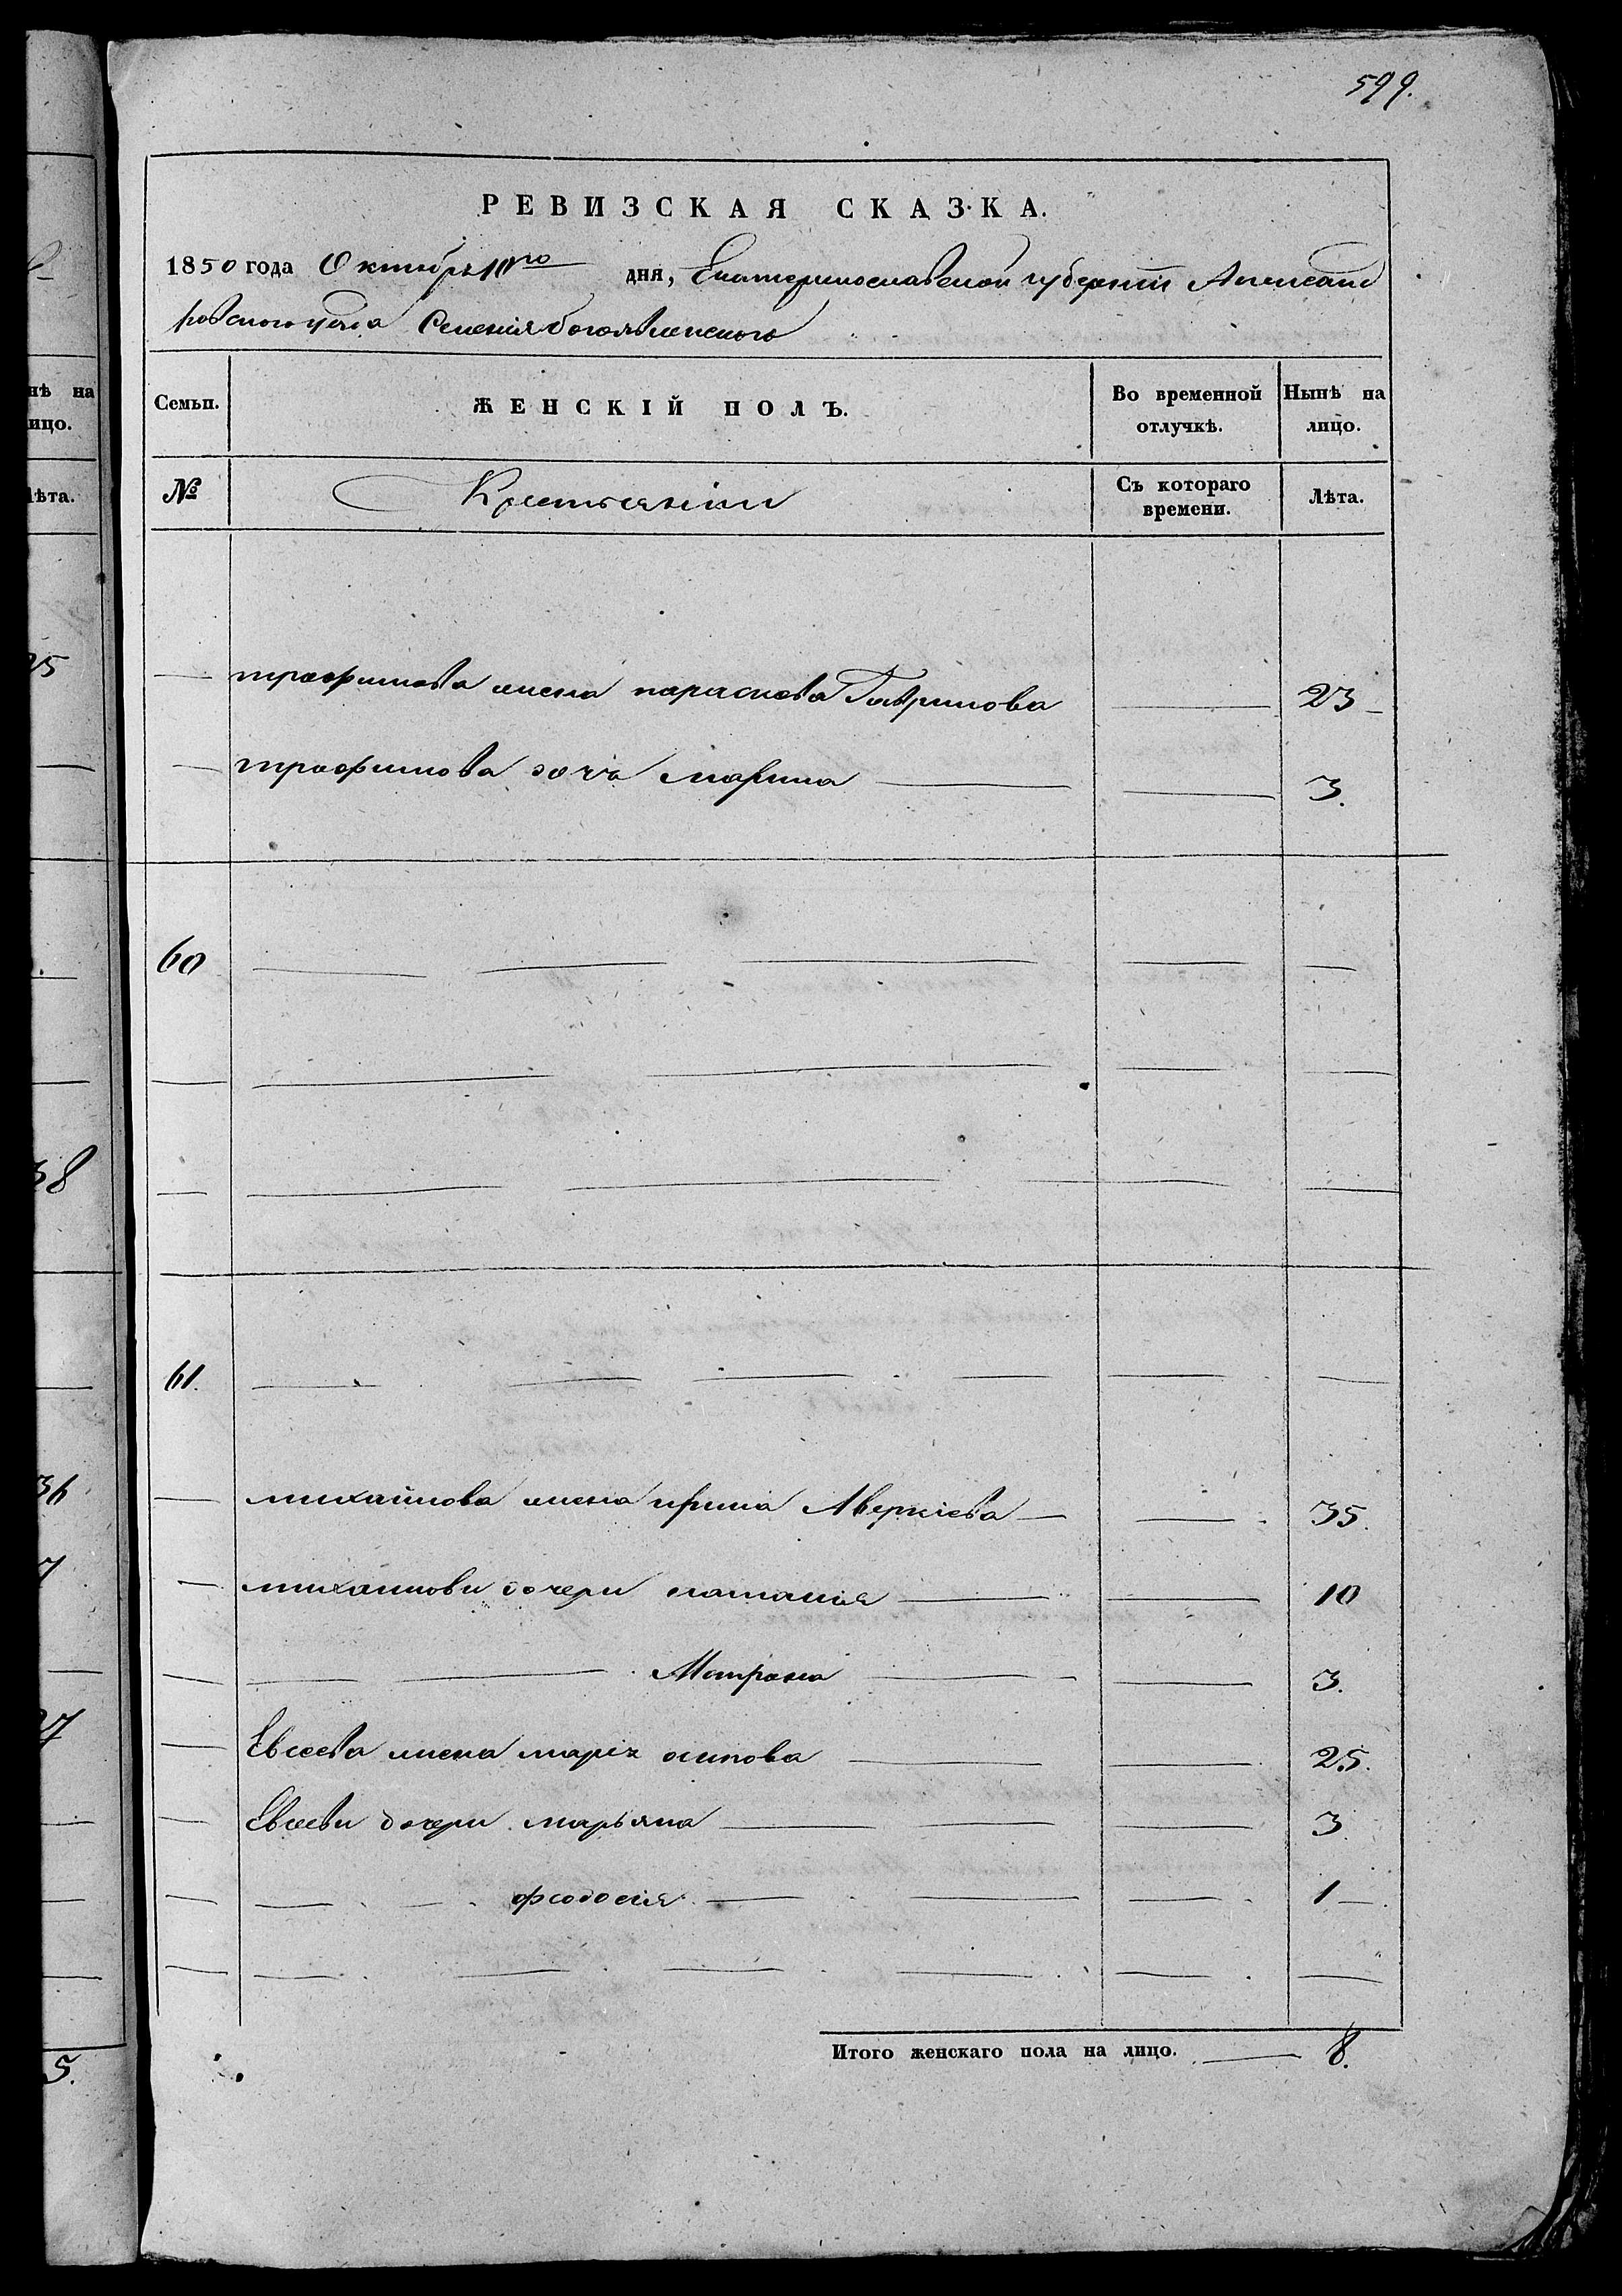 599.
РЕВИЗСКАЯ СКАЗКА.
1850 года Октября 10го дня, Екатеринославской губернии Александ
ровского уезда Селения богоявленского
Семьи. ЖЕНСКІЙ ПОЛЪ. Во временной отлучкѣ. Нынѣ на лицо.
№ Крестьянки Съ котораго времени. Лѣта.
трофимова жена параскева Гаврилова 23
трофимова дочь марина 3.
60
61.
михайлова жена ирина Аверкіева 35.
михайлови дочери наталия 10
Матрона 3.
Евсеева жена марія осипова 25.
Евсееви дочери марьяна 3
феодосия 1
Итого женскаго пола на лицо. 8.
нѣ на
ицо.
лѣта.
25
38
36
7
27
5.